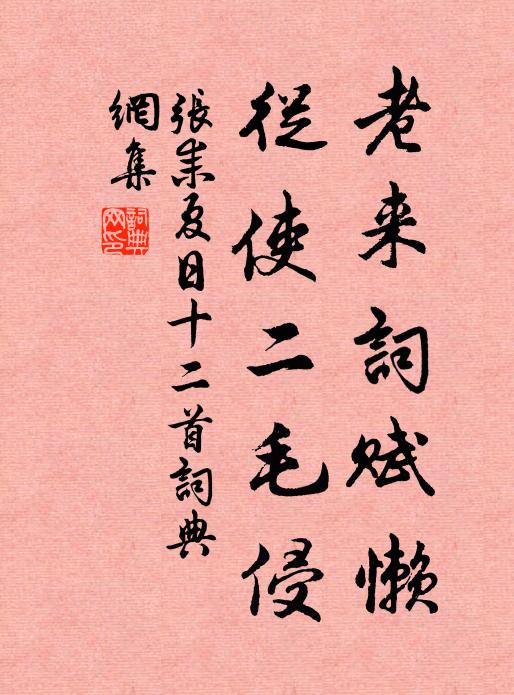 老来詞賦懶
從使二毛侵
張耒夏日十二首詞典
網集
詞典網印